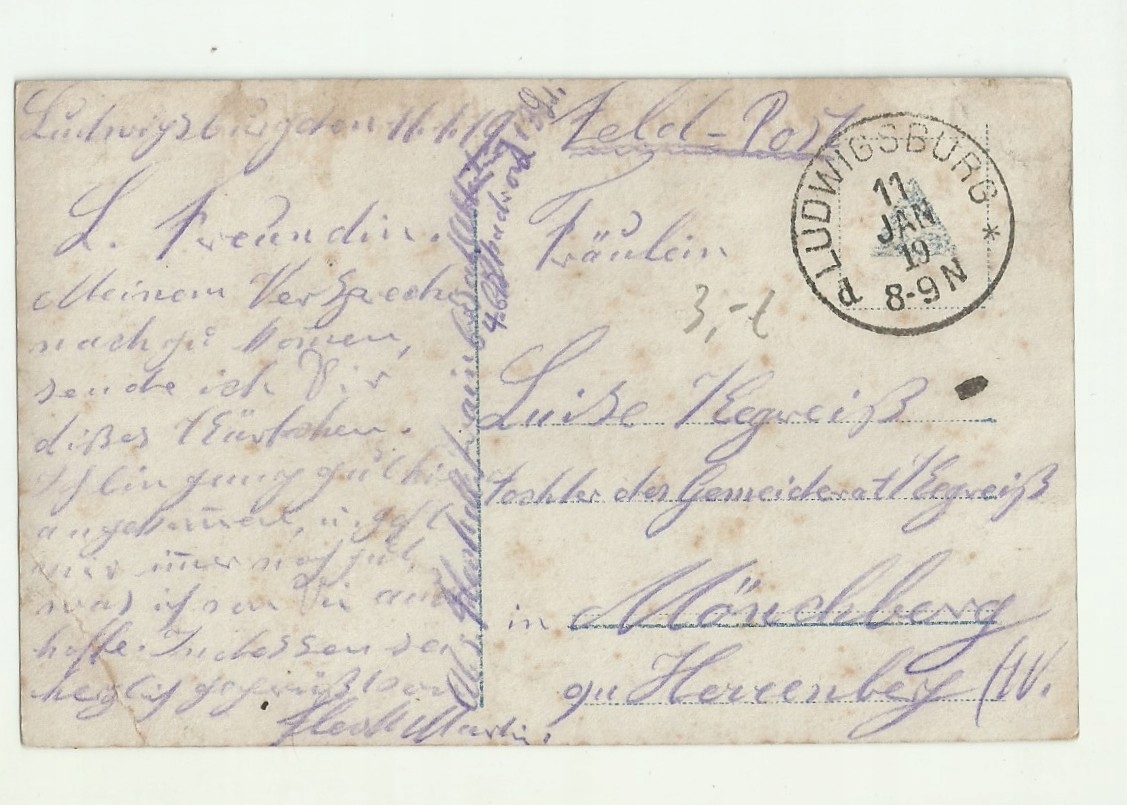 Ludwigsburg den 11.1.19
L. Freundin.
Meinem Versprechen
nach zu komen,
sende ich Dir
dißes Kärtchen.
Ich bin ganz gut hier
angekomen, u. geht
mir imer noch gut,
was ich von Dir auch
hoffe. Indessen sei
herzlich gegrüßt von
Martin.
Feld-Post
P. LUDWIGSBURG *
11
JAN
19
8-9 N
Fräulein
3,-
Luise Kegreiß
tochter des Gemeiderat Kegreiß
in Mönchberg
Herrenberg (W.